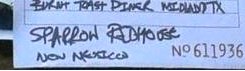 BURNT TOAST DINER MIDLAND TX
SPARROW
NEW MEXICO
Nº 611936